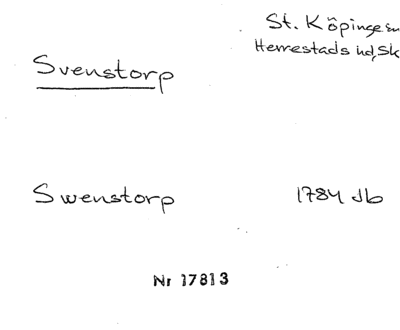 St. Köpinge sn
Herrestads hd, Sk
Svenstorp
Swenstorp 1784 Jb
Nr 17813